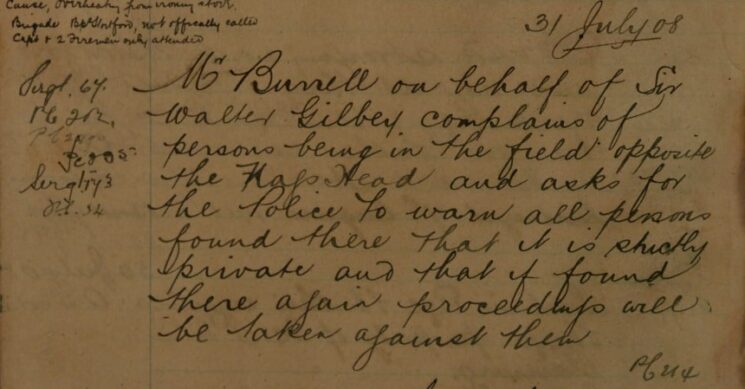 Cause, overheating from ironing stove.
Brigade Bps Stortford, not officially called
Capt & 2 Firemen only attended
31 July 08
Sergt. 67.
PC 202.
Mr Burrell on behalf of Sir
Walter Gilbey complains of
persons being in the field opposite
the Nags Head and asks for
the Police to warn all persons
found there that it is strictly
private and that if found
there again proceedings will
be taken against them
PC 214